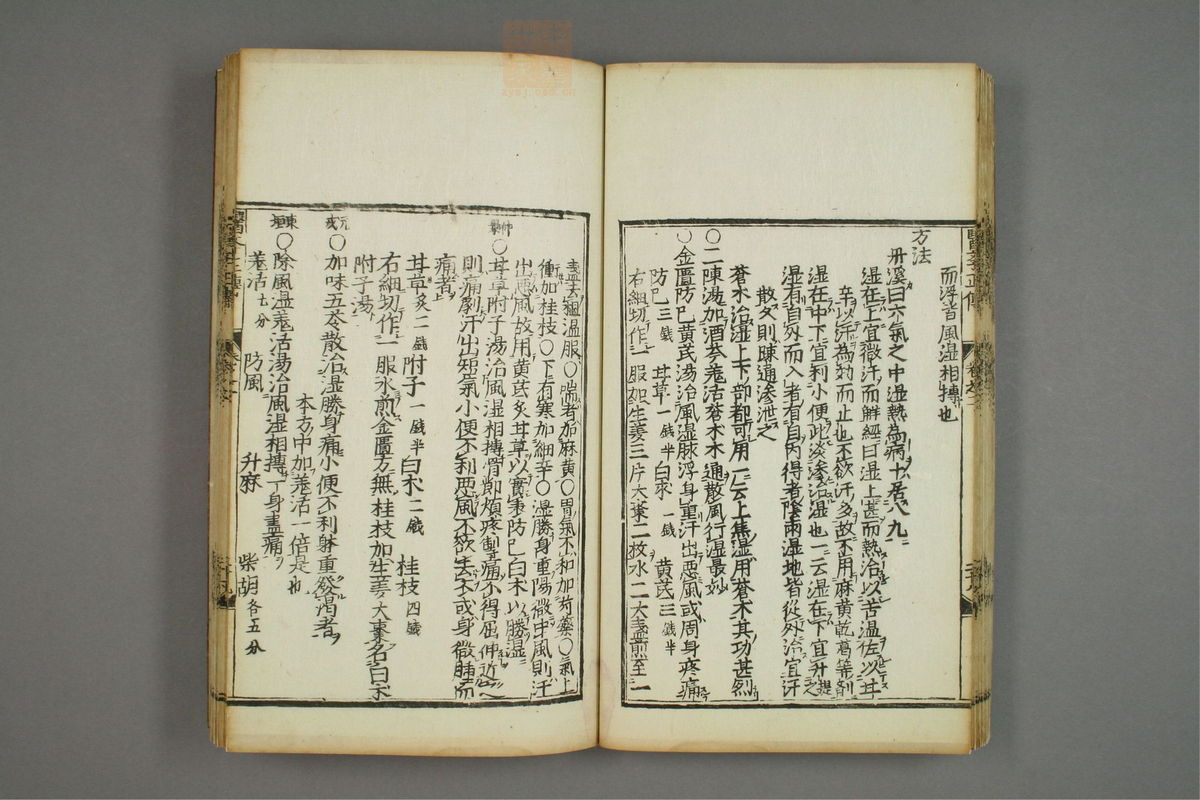 而浮者風湿相摶也
方法
丹溪曰六氣之中湿熱為病十居八九
湿在上宜微汗而解經曰湿上甚而熱治以苦温佐以甘
辛以汗為効而止也不欲汗多故不用麻黄乾葛等剤
湿在中下宜利小便此淡滲治湿也一云湿在下宜升提之
湿有自外而入者有自内得者陰雨湿地皆從外治宜汗
散久則疎通滲泄之
蒼朮治湿上下部都可用一云上焦湿用蒼朮其功甚烈
○二陳湯加酒芩羗活蒼朮木通散風行湿最妙
○金匱防已黄芪湯治風湿脉浮身重汗出惡風或周身疼痛
防已三錢 甘草一錢半 白朮一錢 黄芪三錢半
右細切作一服加生姜三片大棗二枚水二大盞煎至一
盞去粗温服○喘者加麻黄○胃氣不和加芍藥○氣上
衝加桂枝○下有寒加細辛○湿勝身重陽微中風則汗
出惡風故用黄芪炙甘草以實表防已白朮以勝湿
仲景○甘草附子湯治風湿相摶骨節煩疼掣痛不得屈伸近之
則痛劇汗出短氣小便不利惡風不欲去衣或身微腫而
痛者
甘草炙二錢 附子一錢半 白朮二錢 桂枝四錢
右細切作一服水煎金匱方無桂枝加生姜大棗名白朮
附子湯
元戎○加味五苓散治湿勝身痛小便不利躰重發渴者
本方中加羗活一倍是也
東垣○除風湿羗活湯治風湿相摶一身盡痛
羗活七分 防風 升麻 柴胡各五分